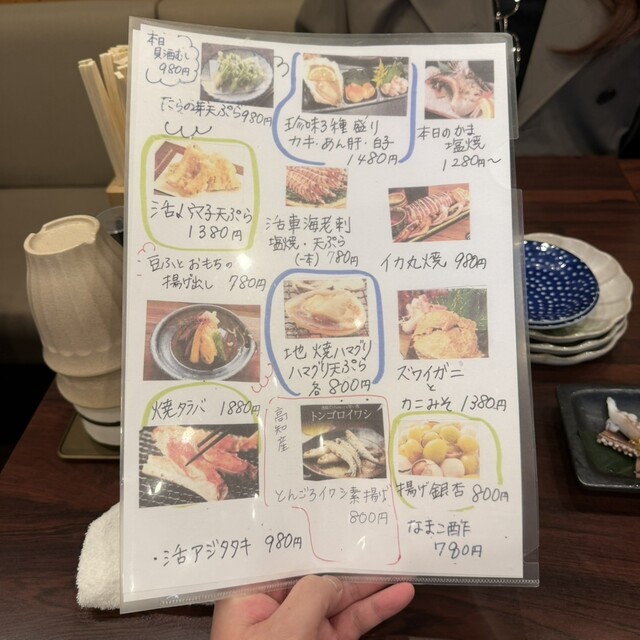 本日
貝酒むし
980円
たらの芽天ぷら980円
珍味3種盛り
カキ・あん肝・白子
1480円
本日のかま
塩焼
1280円~
活ハマ子天ぷら
1380円
活車海老刺
塩焼・天ぷら
(一本) 780円
イカ丸焼 980円
豆ふとおもちの
揚げ出し 780円
地焼ハマグリ
ハマグリ天ぷら
各800円
ズワイガニ
と
カニみそ 1380円
焼タラバ 1880円
高知産
トンゴロイワシ
とんごろイワシ素揚げ
800円
揚げ銀杏 800円
なまこ酢
780円
・活アジタタキ 980円